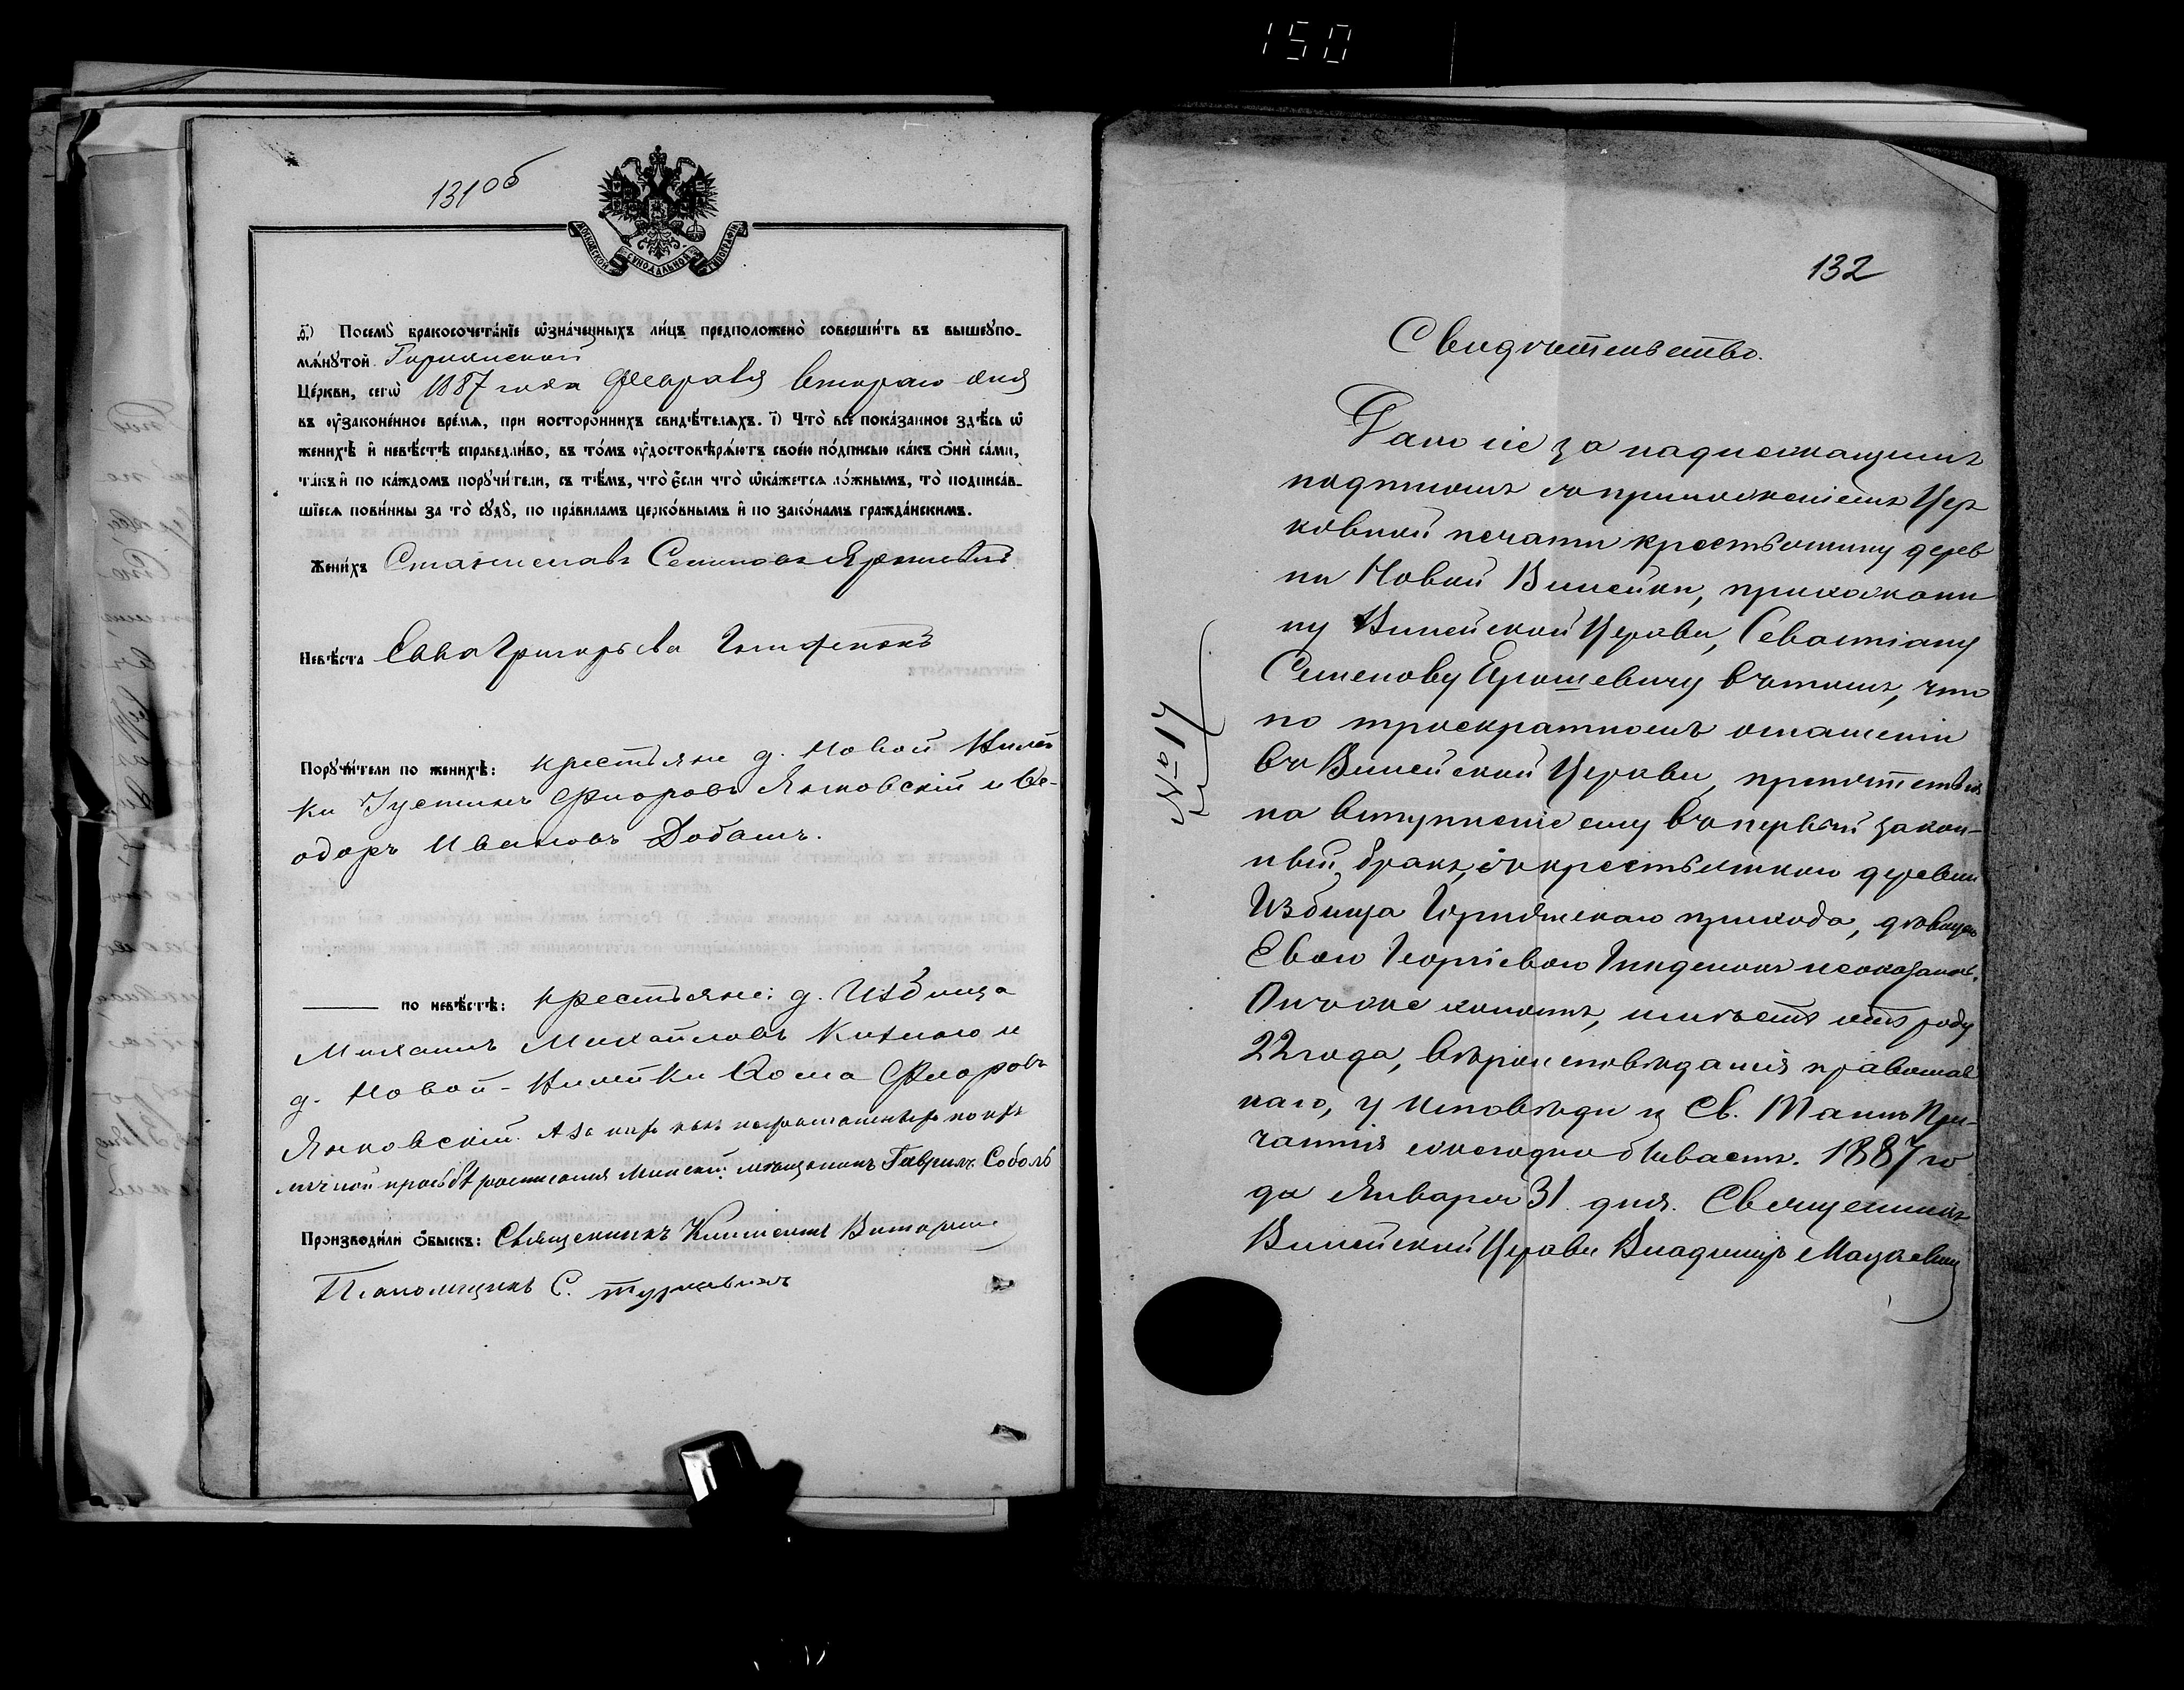 150
131 об
МОСКОВСКОЙ СѴНОДАЛЬНОЙ ТИПОГРАФІИ
д҃і) Посемꙋ̀ бракосочета́нїе ѡ҆зна́ченныхъ ли́цъ предположено̀ соверши́ть въ вышеꙋпо-
мѧ́нꙋтой
Це́ркви, сегѡ̀ 1887 года Февраля втораго дня
въ ᲂу҆законе́нное вре́мѧ, при посторо́ннихъ свидѣ́телѧхъ. і҃) Что̀ всѐ пока́занное здѣ́сь ѡ҆
женихѣ̀ и҆ невѣ́стѣ справедли́во, въ то́мъ ᲂу҆достовѣрѧ́ютъ свое́ю по́дписью ка́къ ѻ҆нѝ са́ми,
та́къ и҆ по ка́ждомъ порꙋчи́тели, съ тѣ́мъ, что̀ є҆́сли что̀ ѡ҆ка́жетсѧ ло́жнымъ, то̀ подписа́в-
шїесѧ пови́нны за то̀ сꙋдꙋ̀, по пра́виламъ церко́внымъ и҆ по зако́намъ гражда́нскимъ.
Жени́хъ Станиславъ Семеновъ Ярошевичъ
Невѣ́ста Евва Григорьева
Порꙋчи́тели по женихѣ̀: крестьяне д. Новой Нилей
ки Іустинъ Флоровъ Янковскій и Ѳе-
одоръ Ивановъ Добашъ.
—— по невѣ́стѣ: крестьяне: д. Избища
Михаилъ Михайловъ и
д. Новой-Нилейки Ѳома Флоровъ
Янковскій. А за ихъ какъ неграмотныхъ по ихъ
личной просьбѣ росписался Минскій мѣщанинъ Гаврилъ Соболь
Производи́ли ѻ҆́быскъ: Священникъ Климентъ
Псаломщикъ С.
132
Свидѣтельство.
Дано сіе за надлежащимъ
подписомъ съ приложеніемъ Цер
ковной печати крестьянину дерев
ни Новой Вилейки, прихожани
ну Вилейской Церкви, Севастіану
Семенову Ярошевичу въ томъ, что
по троекратномъ оглашеніи
въ Вилейской Церкви, препятствія
на вступленіе ему въ первый закон-
ный бракъ, съ крестьянкою деревни
Избища прихода, дѣвицею
Евою Георгіевою не оказалось.
Онъ же холостъ, имѣетъ отъ роду
22 года, вѣроисповѣданія православ
наго, у Исповѣди и Св. Таинъ При-
частія ежегодно бываетъ. 1887 го
да Января 31 дня. Священникъ
Вилейской Церкви Владиміръ Мацкевичъ
№ 17